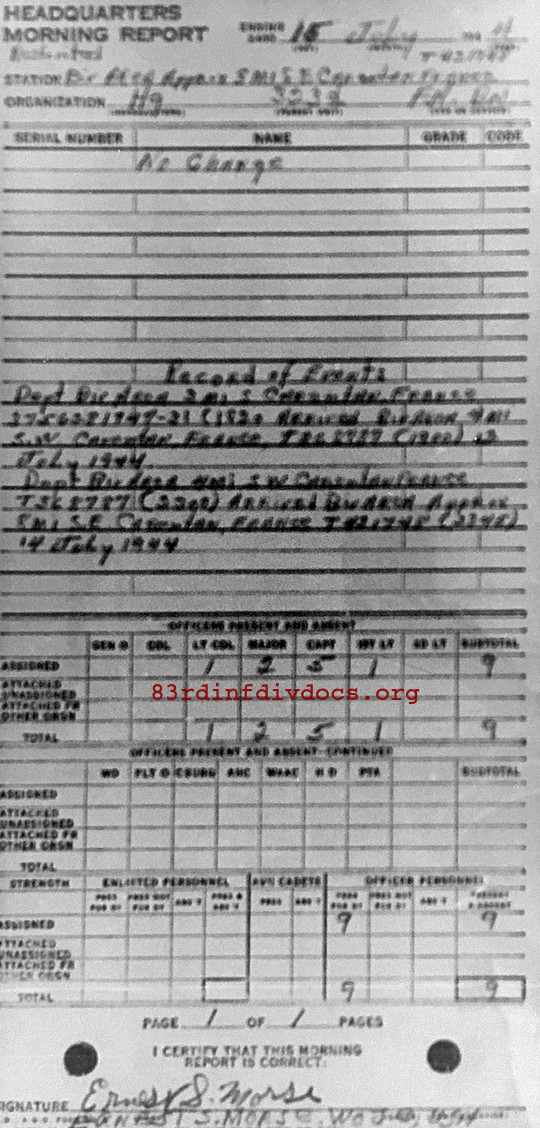 HEADQUARTERS
MORNING REPORT
ENDING 15 July
STATION Biv Area Approx 5 MI S E Carentan France
ORGANIZATION Hq
SERIAL NUMBER NAME GRADE CODE
No Change
Record of Events
Dept Biv Area 3 MI S Carentan, France
Arrived Biv Area, 4 MI
S.W. Carentan, France, (1900) 13
July 1944
Dept Biv Area 4 MI S W Carentan France
T368787 (2300) Arrived Biv Area Approx
5 MI S.E Carentan, France (2345)
14 July 1944
OFFICERS PRESENT AND ABSENT
GEN O COL LT COL MAJOR CAPT 1ST LT 2D LT SUBTOTAL
ASSIGNED 1 2 5 1 9
ATTACHED
UNASSIGNED
ATTACHED FR
OTHER ORGN
TOTAL 1 2 5 1 9
83rdinfdivdocs.org
OFFICERS PRESENT AND ABSENT-CONTINUED
WO FLT O ANC WAAC H D PTA SUBTOTAL
ASSIGNED
ATTACHED
UNASSIGNED
ATTACHED FR
OTHER ORGN
TOTAL
STRENGTH ENLISTED PERSONNEL AVN CADETS OFFICER PERSONNEL
PRES FOR DY PRES NOT FOR DY ABS T PRES & ABS T PRES ABS T PRES FOR DY PRES NOT FOR DY ABS T PRESENT & ABSENT
ASSIGNED 9 9
ATTACHED
UNASSIGNED
ATTACHED FR
OTHER ORGN
TOTAL 9 9
PAGE 1 OF 1 PAGES
I CERTIFY THAT THIS MORNING
REPORT IS CORRECT:
SIGNATURE Ernest S. Morse
ERNEST S. MORSE, WO